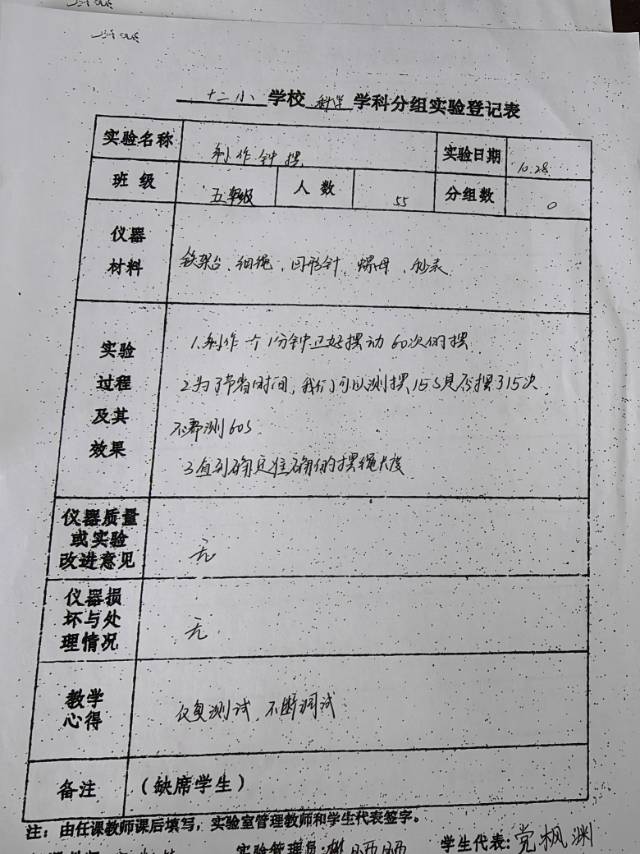 十二小 学校 科学 学科分组实验登记表
实验名称 制作钟摆 实验日期 10.28
班级 五年级 人数 55 分组数 0
仪器材料 铁架台、细绳、回形针、螺母、秒表
实验过程及其效果 1.制作一个1分钟正好摆动60次的摆
2.为了节省时间，我们可以测摆15s是否摆了15次
不都测60s.
3.直到确定准确的摆绳长度
仪器质量或实验改进意见 无
仪器损坏与处理情况 无
教学心得 反复测试，不断调试
备注 （缺席学生）
注：由任课教师课后填写，实验室管理教师和学生代表签字。
实验管理员: 晒晒 学生代表: 党枫渊